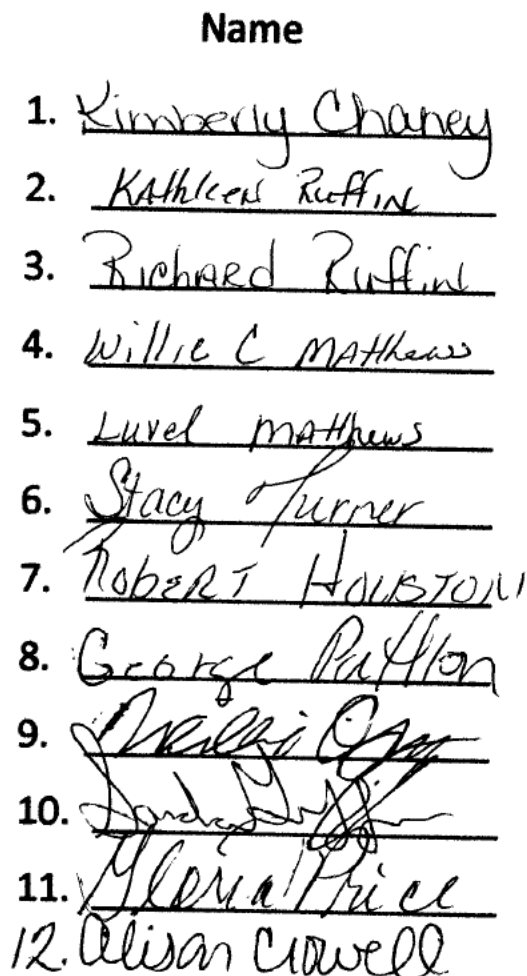 Name
1. Kimberly Chaney
2. Kathleen Ruffin
3. Richard Ruffin
4. Willie C Matthews
5. Luvel Matthews
6. Stacy Turner
7. Robert Houston
8. George Patton
9.
10. Sandra
11. Gloria Price
12. Alison Crowell